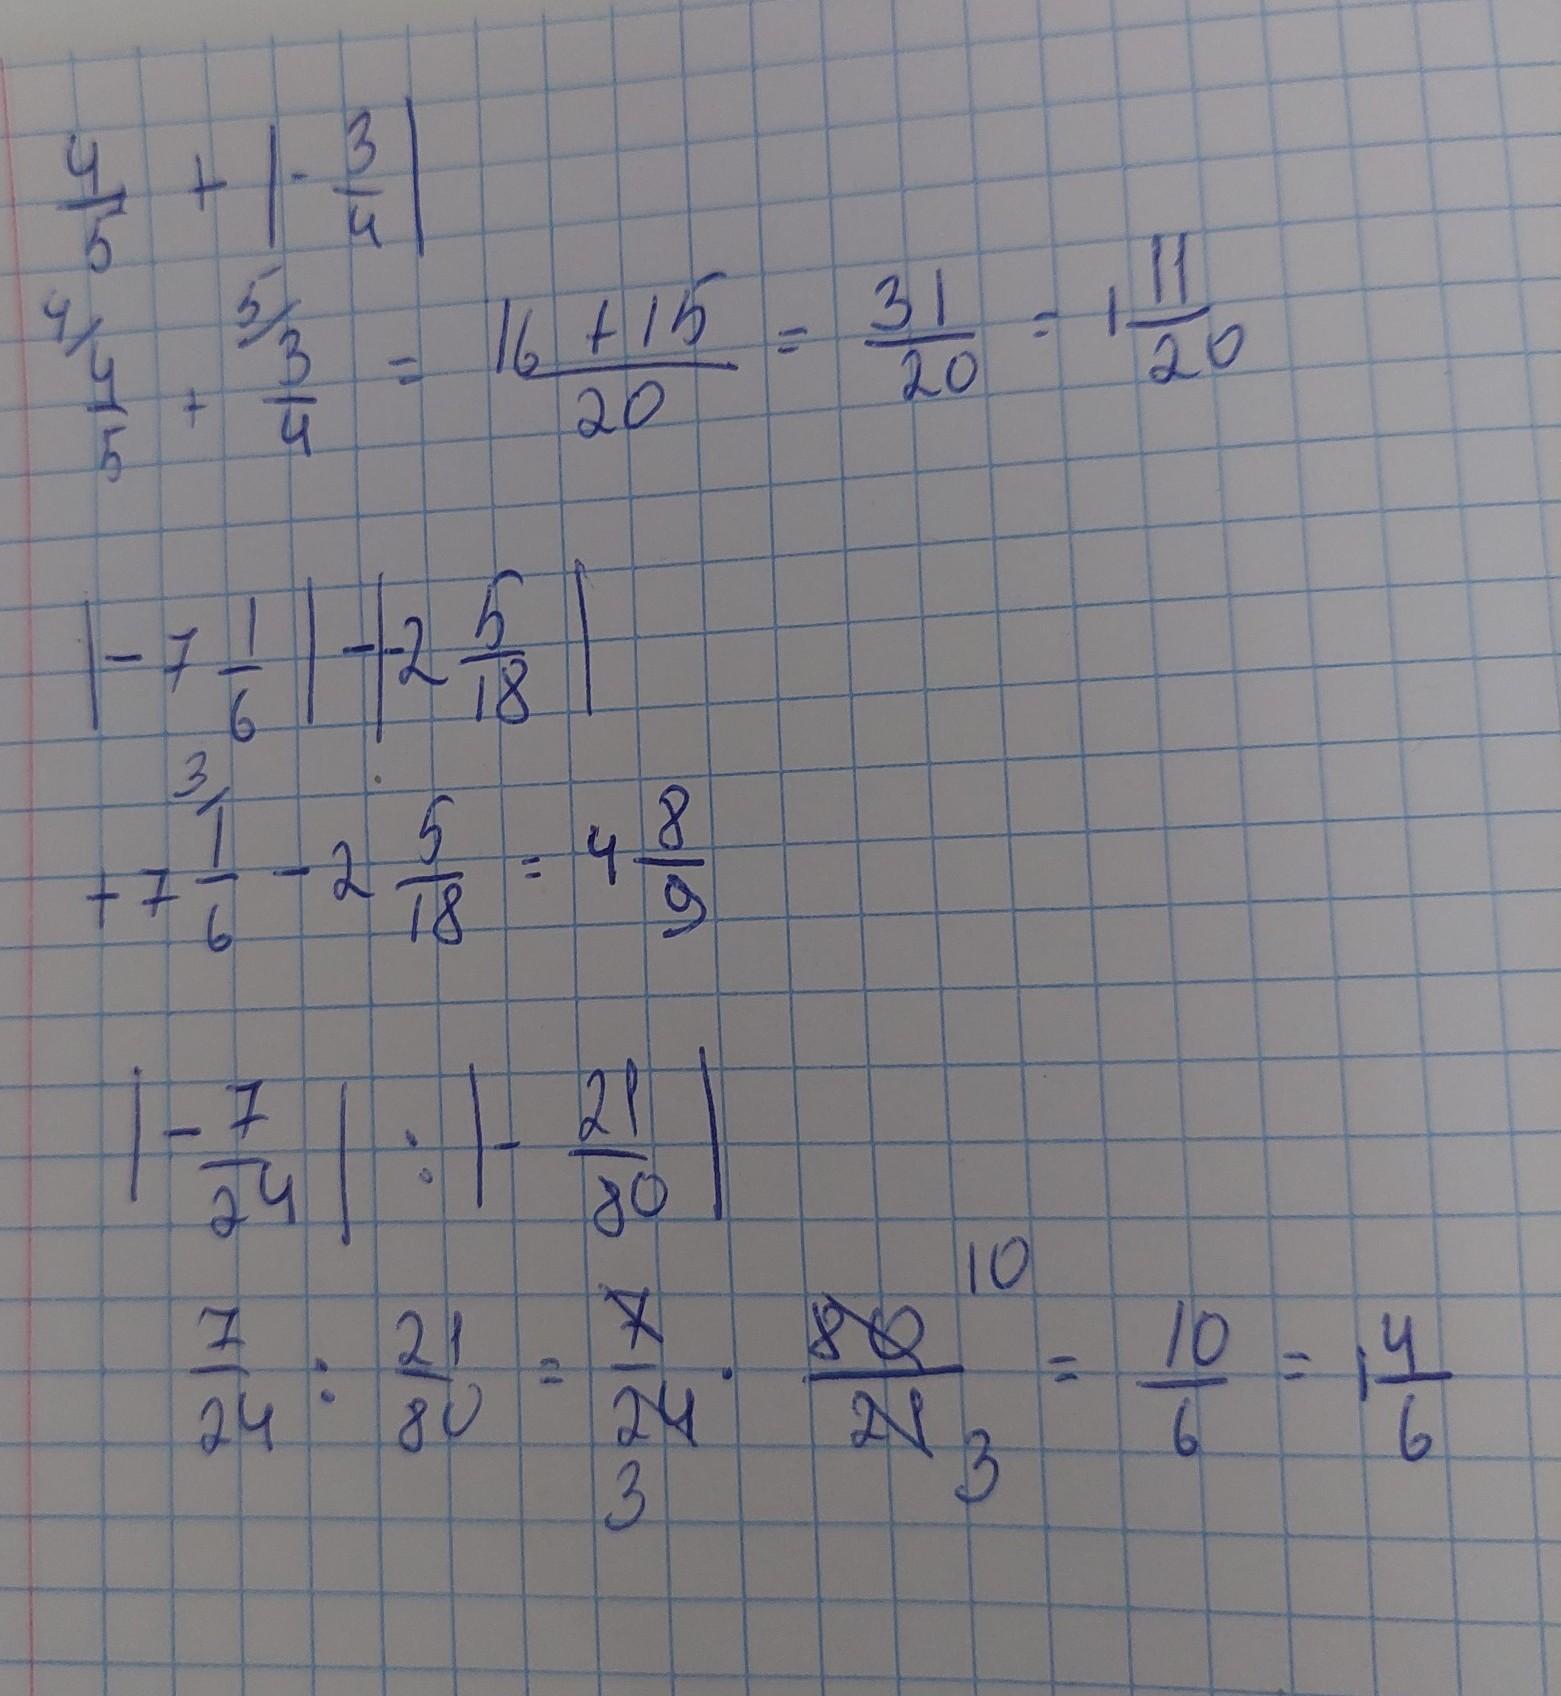 4/5 + |- 3/4|
4/ 4/5 + 5/ 3/4 = (16 + 15)/20 = 31/20 = 1 11/20
|- 7 1/6| - |-2 5/18|
+ 7 3/ 1/6 - 2 5/18 = 4 8/9
|- 7/24| : |- 21/80|
7/24 : 21/80 = 7/24 3 · 80/21 10 3 = 10/6 = 1 4/6